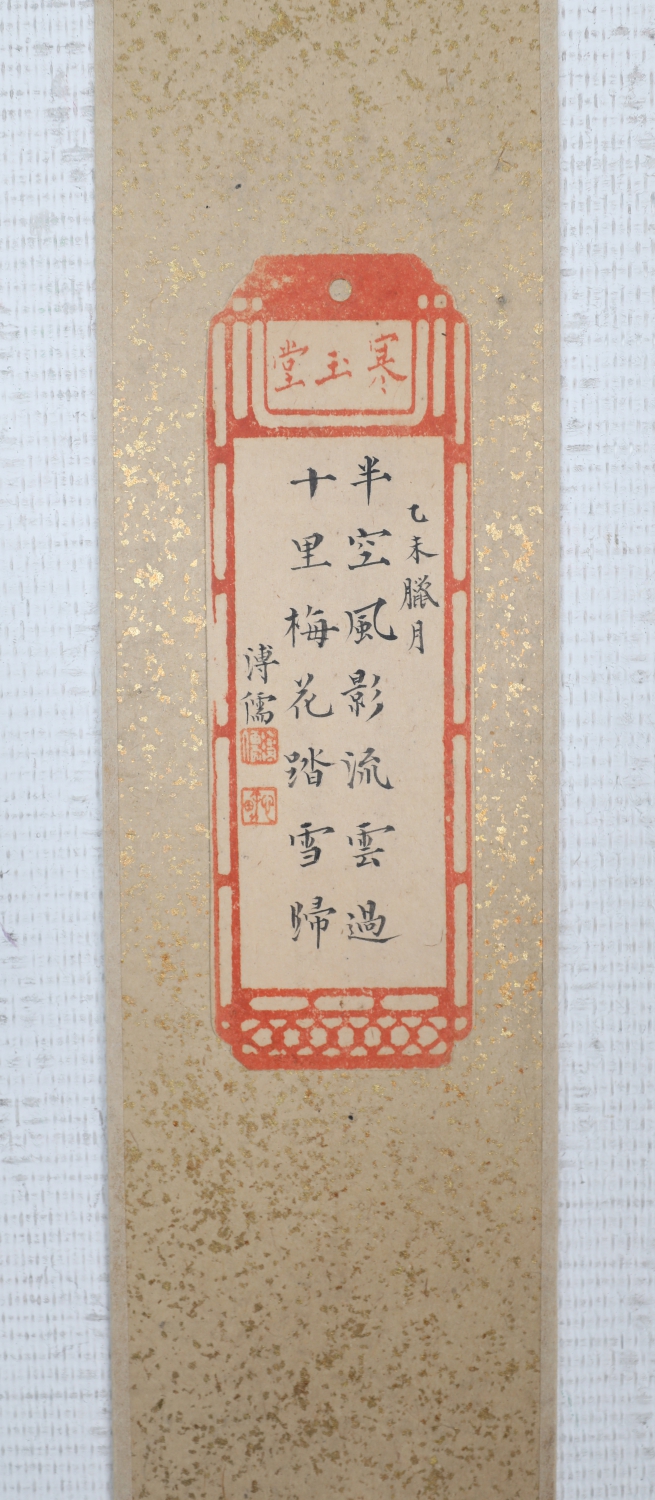 寒玉堂
乙未臘月
半空風影流雲過
十里梅花踏雪歸
溥儒
溥儒
心畬